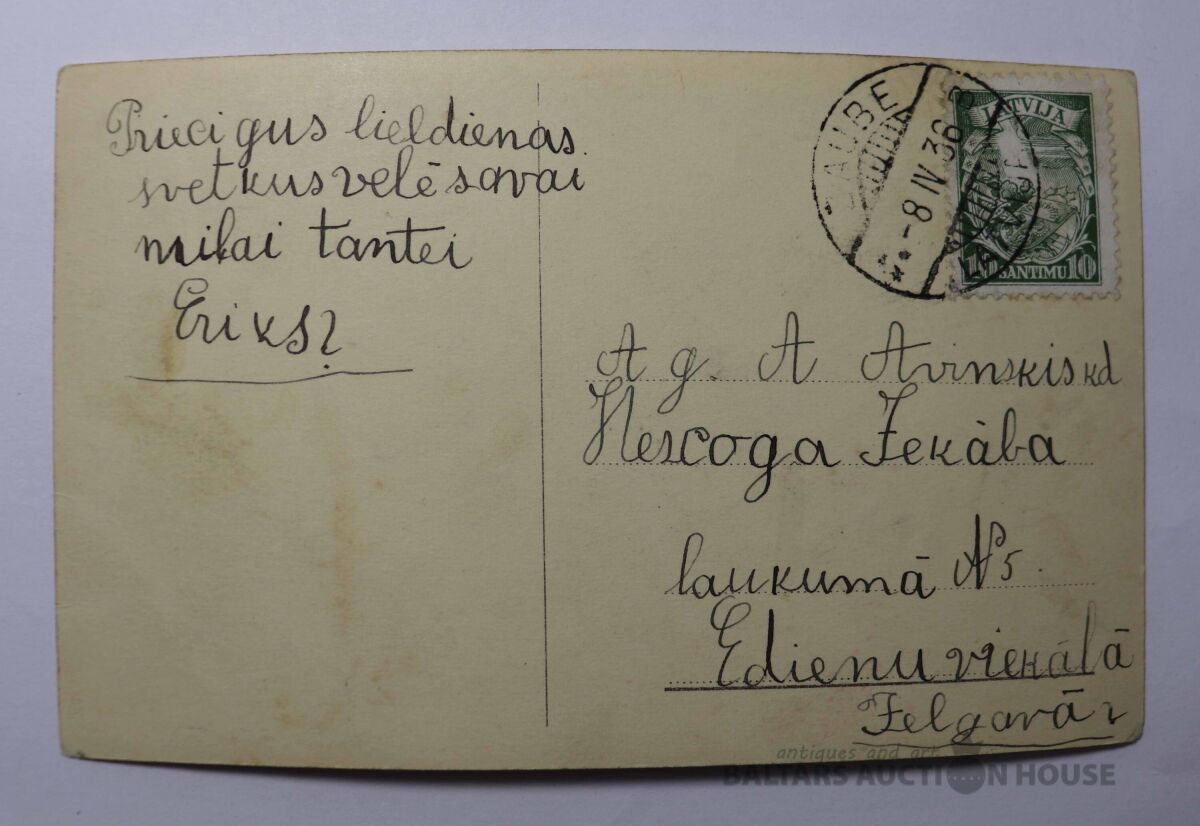 Priecigus lieldienas
svetkus velē savai
milai tantei
Eriks
AUBE
-8 IV 36
LATVIJA
10 SANTIMU 10
A g. A Avinskis kd
Hescoga Jekàba
laukumā № 5.
Edienu viekālā
Jelgavā
antiques and art
BALTARS AUCTION HOUSE